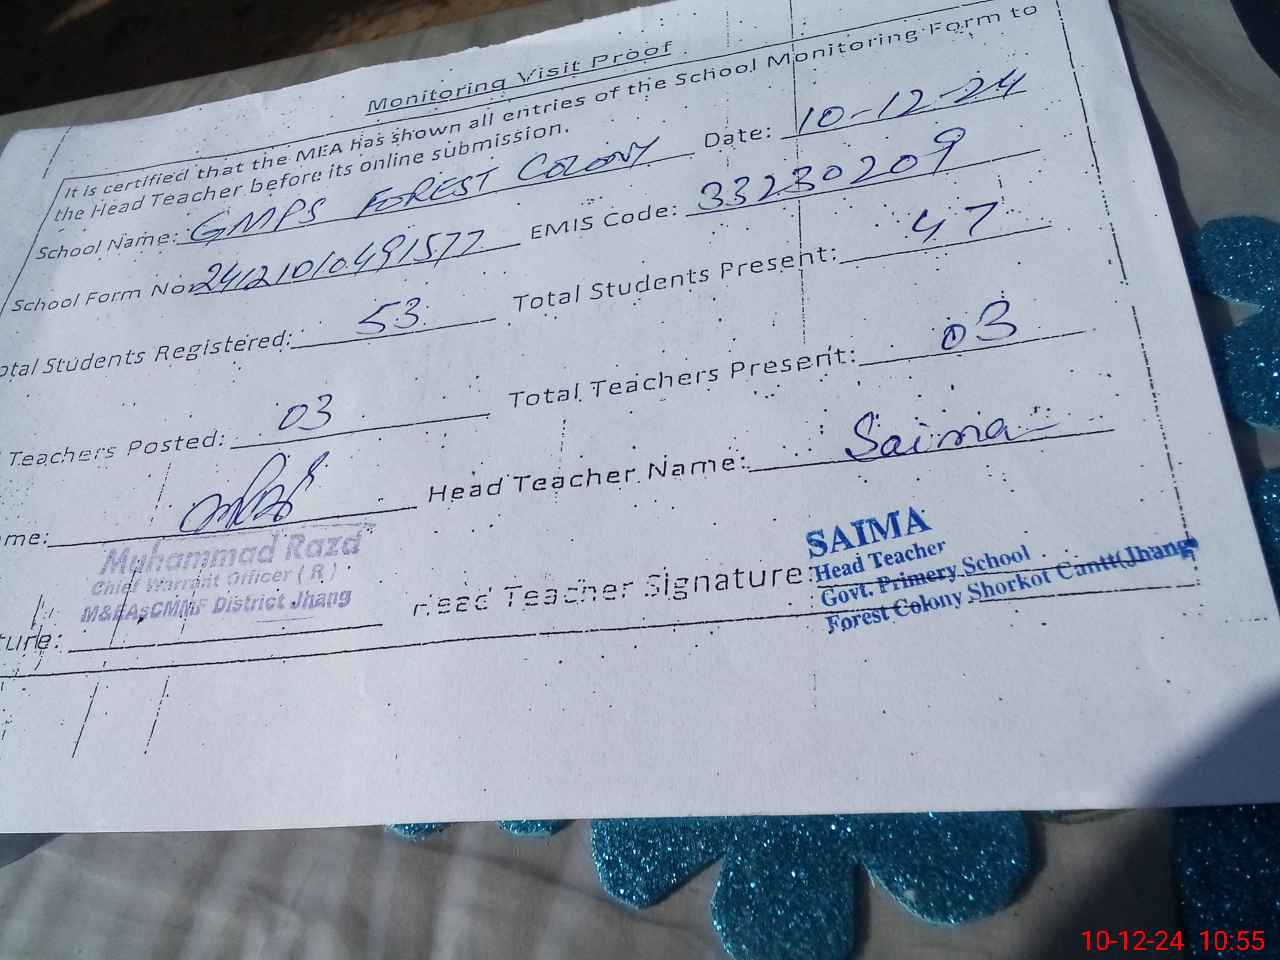 Monitoring Visit Proof
It is certified that the MEA has shown all entries of the School Monitoring Form to
the Head Teacher before its online submission.
School Name: GMPS FOREST COLONY Date: 10-12-24
School Form No. 24121010491577 EMIS Code: 33230209
otal Students Registered: 53 Total Students Present: 47
Teachers Posted: 03 Total Teachers Present: 03
me: Head Teacher Name: Saima
Muhammad Raza
Chief Warrant Officer ( R )
M&EAsCMMF District Jhang
ture: Head Teacher Signature:
SAIMA
Head Teacher
Govt. Primery School
Forest Colony Shorkot Cantt(Jhang)
10-12-24 10:55